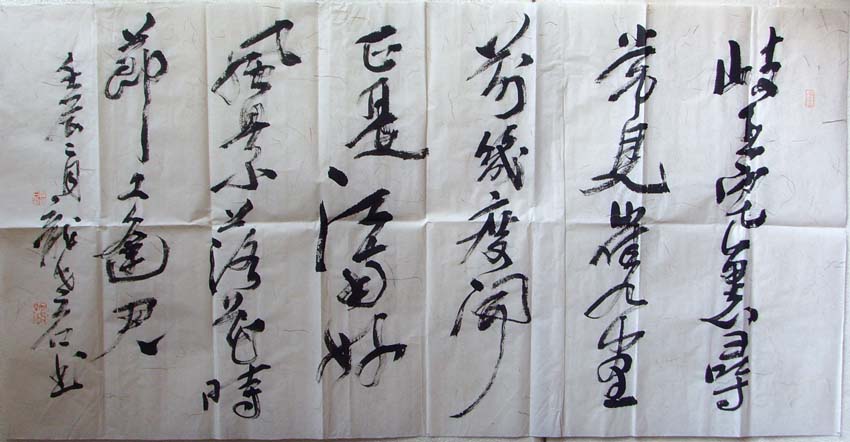 岐王宅裏尋
常見崔九堂
前幾度聞
正是江南好
風景落花時
節又逢君
壬辰二月書